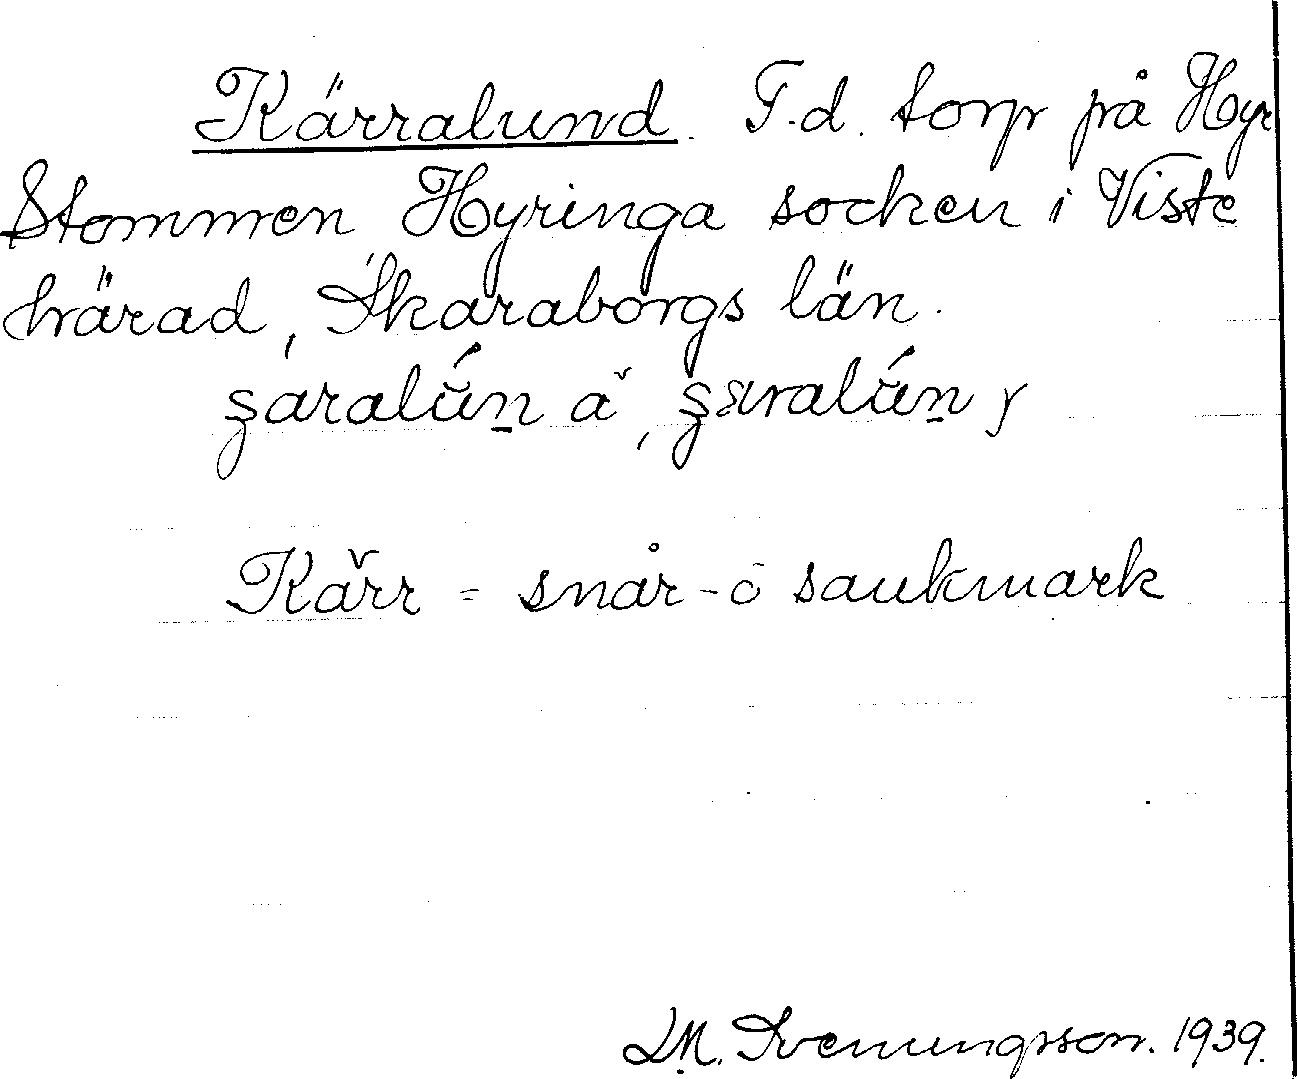 Kärralund. F.d. torp på Hyr
Stommen Hyringa socken i Viste
härad, Skaraborgs län.
Kärr = snår- o sankmark
L.M. Svenungsson. 1939.